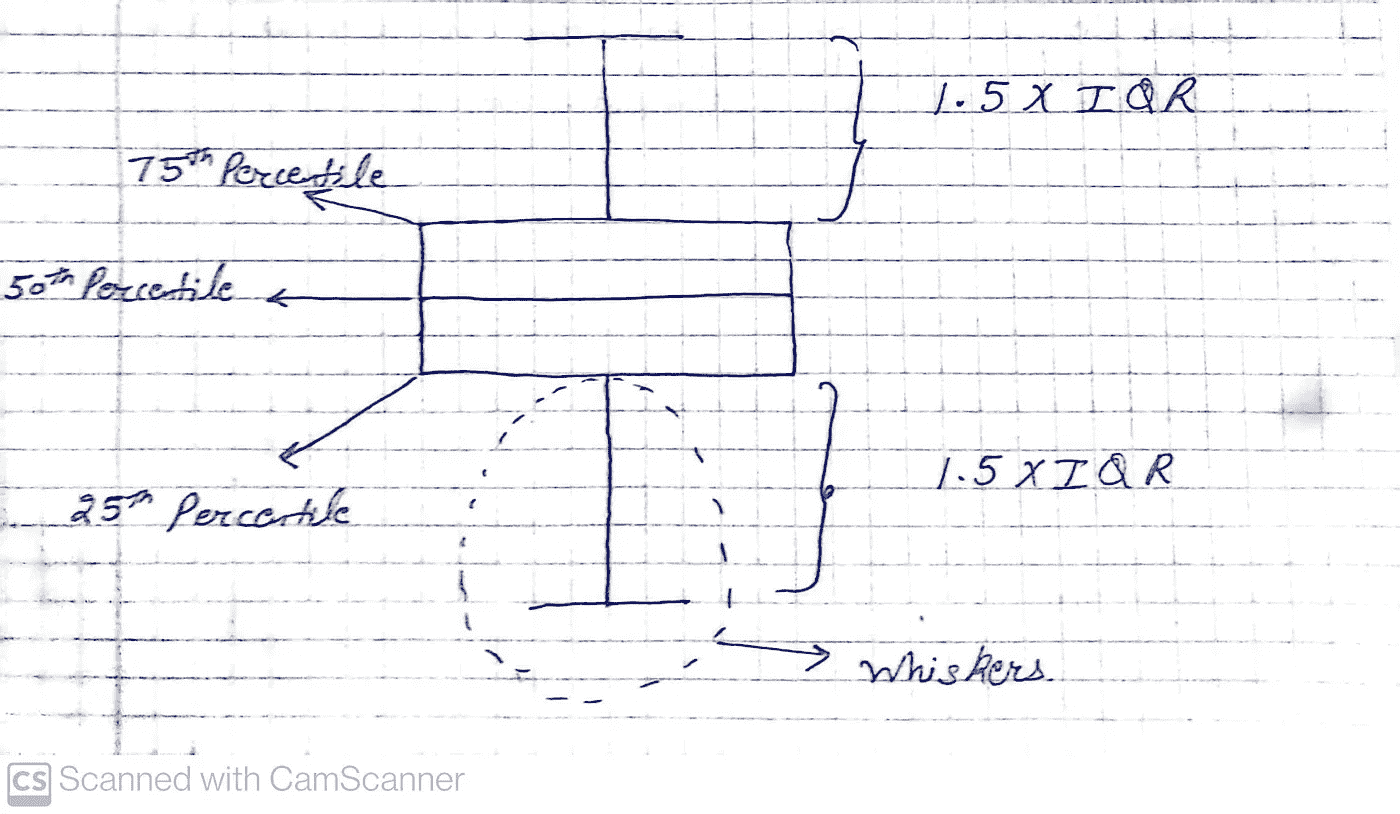 1.5 X IQR
75th Percentile
50th Percetile
25th Percentile
1.5 X IQR
Whiskers.
CS Scanned with CamScanner